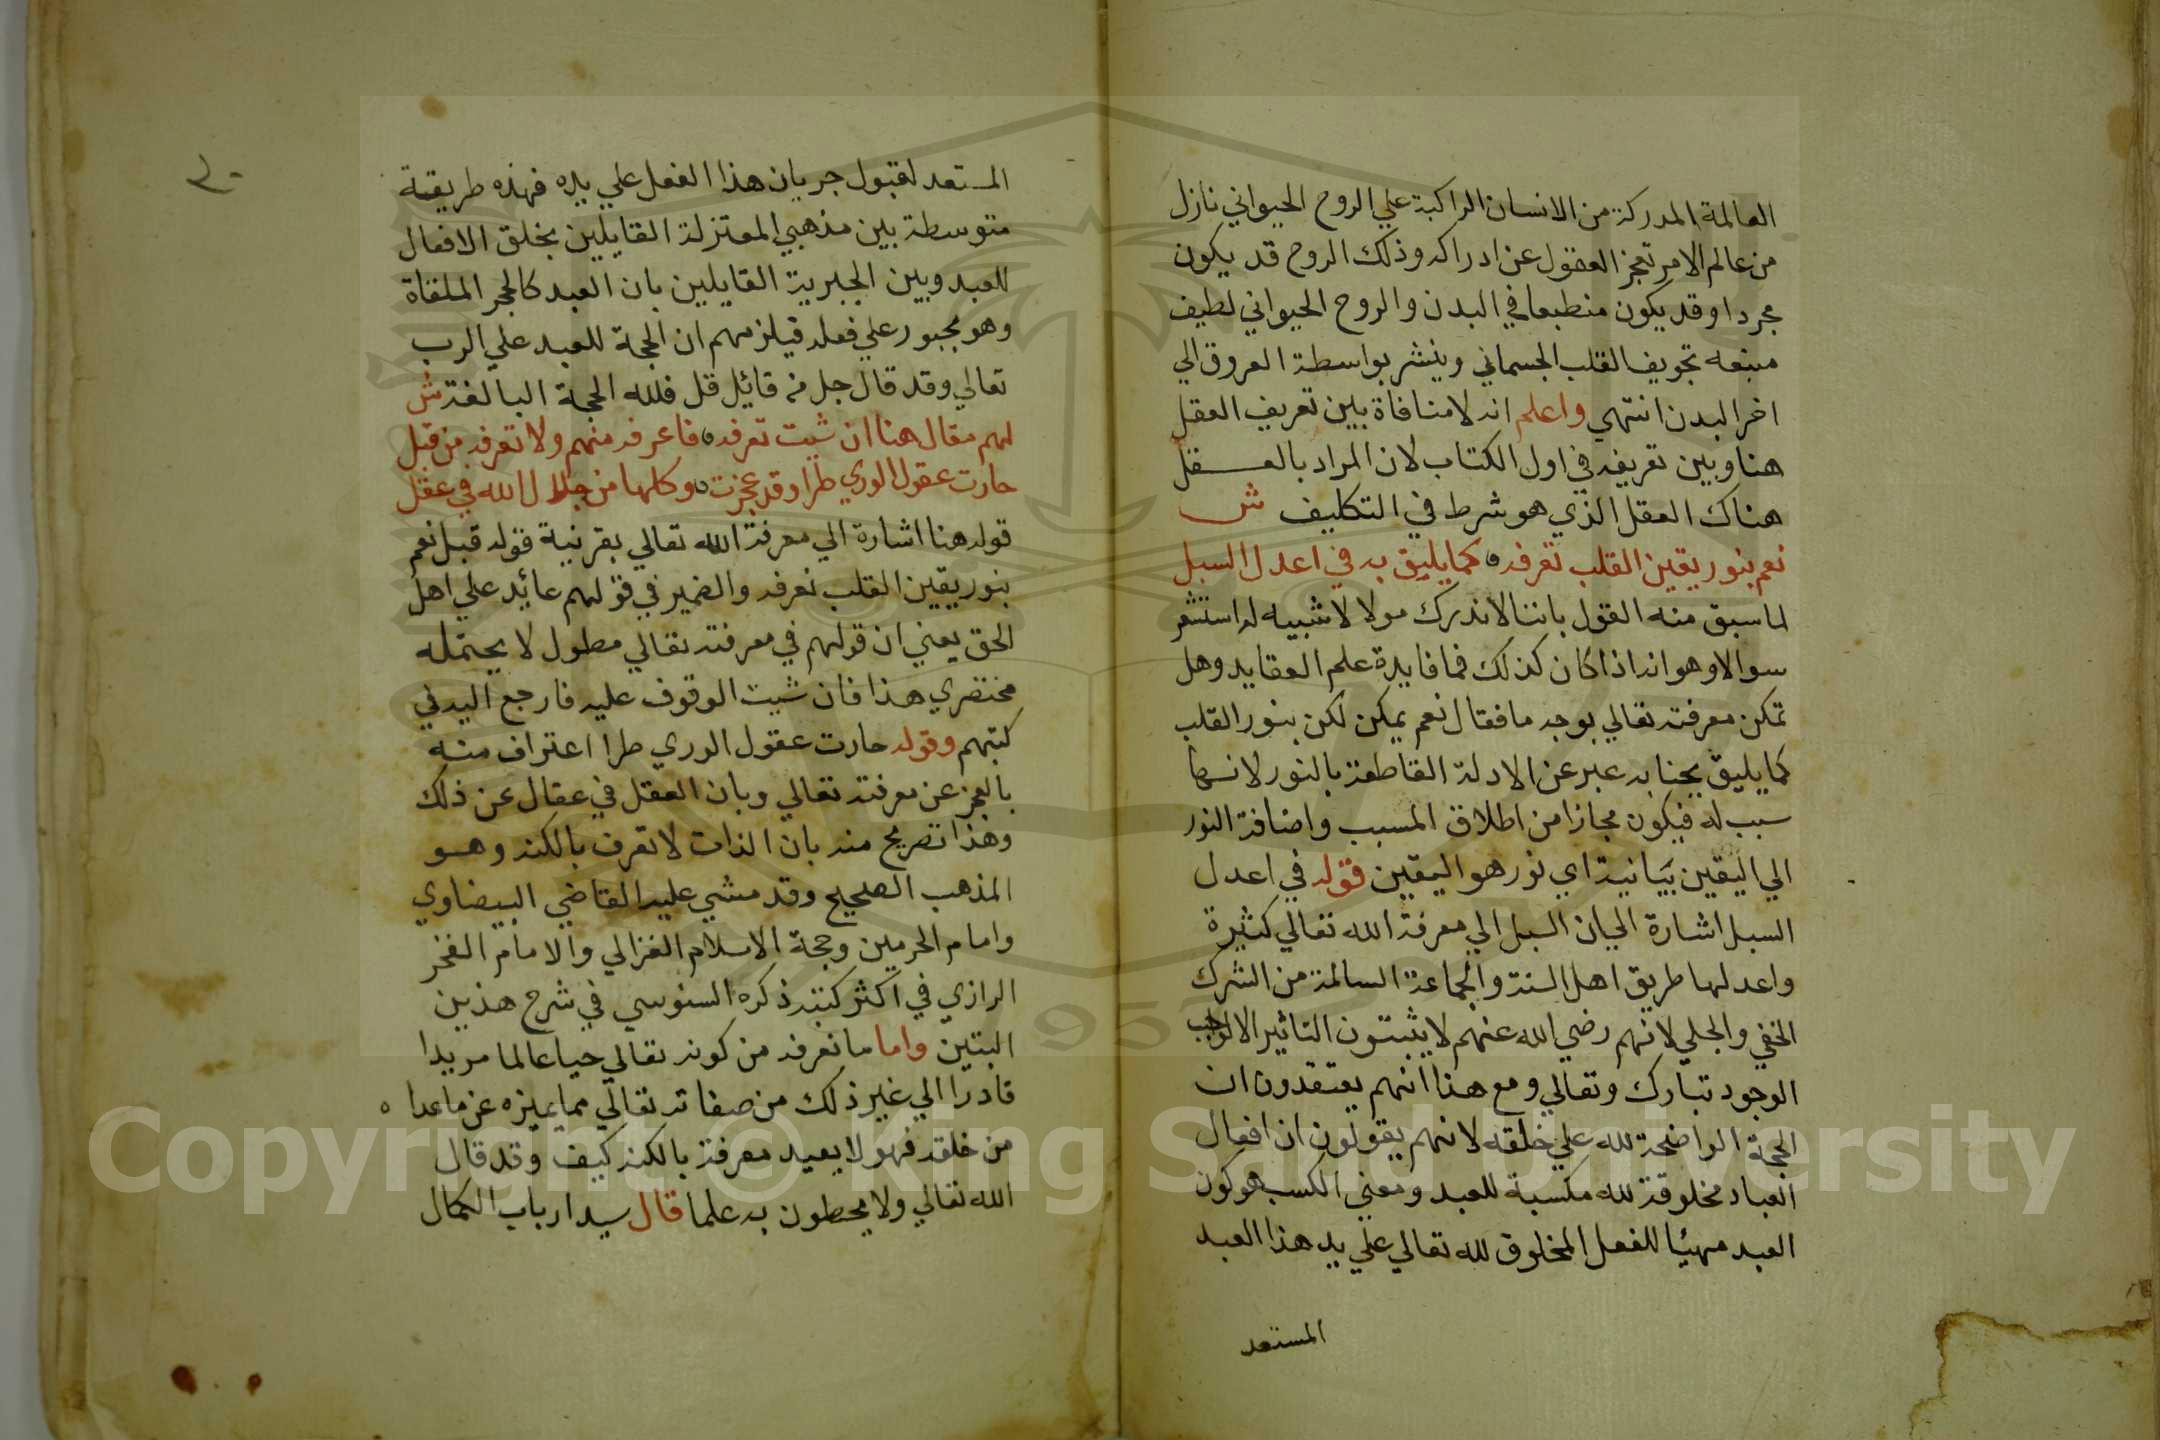 العالمة المدركة من الانسان الراكبة علي الروح الحيواني نازل
من عالم الامر تعجز العقول عن ادراكه وذلك الروح قد يكون
مجردا وقد يكون منطبعا في البدن والروح الحيواني لطيف
منبعه تجويف القلب الجسماني وينشر بواسطة العروق الي
اخر البدن انتهي واعلم انه لا منافاة بين تعريف العقل
هنا وبين تعريفه في اول الكتاب لان المراد بالعقل
هناك العقل الذي هو شرط في التكليف ش
نعم بنور يقين القلب تعرفه كما يليق به في اعدل السبل
لما سبق منه القول باننا لا ندرك مولا لا شبيه له استشعر
سوالا وهو انه اذا كان كذلك فما فايدة علم العقايد وهل
تمكن معرفته تعالي بوجه ما فقال نعم يمكن لكن بنور القلب
كما يليق بجنابه عبر عن الادلة القاطعة بالنور لانها
سبب له فيكون مجازا من اطلاق المسبب واضافة النور
الي اليقين بيانية اي نور هو اليقين قوله في اعدل
السبل اشارة الي ان السبل الي معرفة الله تعالي كثيرة
واعدلها طريق اهل السنة والجماعة السالمة من الشرك
الخفي والجلي لانهم رضي الله عنهم لا يثبتون التاثير الا لواجب
الوجود تبارك وتعالي ومع هذا انهم يعتقدون ان
الحجة الواضحة لله علي خلقه لانهم يقولون ان افعال
العباد مخلوقة لله مكسبة للعبد ومعني الكسب هو كون
العبد مهيئا للفعل المخلوق لله تعالي علي يد هذا العبد
المستعد
المستعد لقبول جريان هذا الفعل علي يده فهذه طريقة
متوسطة بين مذهبي المعتزلة القايلين بخلق الافعال
للعبد وبين الجبرية القايلين بان العبد كالحجر الملقاة
وهو مجبور علي فعله فيلزمهم ان الحجة للعبد علي الرب
تعالي وقد قال جل من قائيل قل فلله الحجة البالغة ش
لهم مقال هنا ان شيت تعرفه فاعرفه منهم ولا تعرفه من قبل
حارت عقول الوري طرا وقد عجزت وكلها من جلال الله في عقل
قوله هنا اشارة الي معرفة الله تعالي بقرنية قوله قبل نعم
بنور يقين القلب نعرفه والضمير في قولهم عائيد علي اهل
الحق يعني ان قولهم في معرفته تعالي مطول لا يحتمله
مختصري هذا فان شيت الوقوف عليه فارجع اليه في
كتبهم وقوله حارت عقول الوري طرا اعتراف منه
بالعجز عن معرفته تعالي وبان العقل في عقال عن ذلك
وهذا تصريح منه بان الذات لا تعرف بالكنه وهو
المذهب الصحيح وقد مشي عليه القاضي البيضاوي
وامام الحرمين وحجة الاسلام الغزالي والامام الفخر
الرازي في اكثر كتبه ذكره السنوسي في شرح هذين
البتين واما ما نعرفه من كونه تعالي حيا عالما مريدا
قادرا الي غير ذلك من صفاته تعالي مما يميزه عن ما عدا ه
من خلقه فهو لا يعيد معرفة بالكنه كيف وقد قال
الله تعالي ولا يحطون به علما قال سيد ارباب الكمال
Copyright © King Saud University